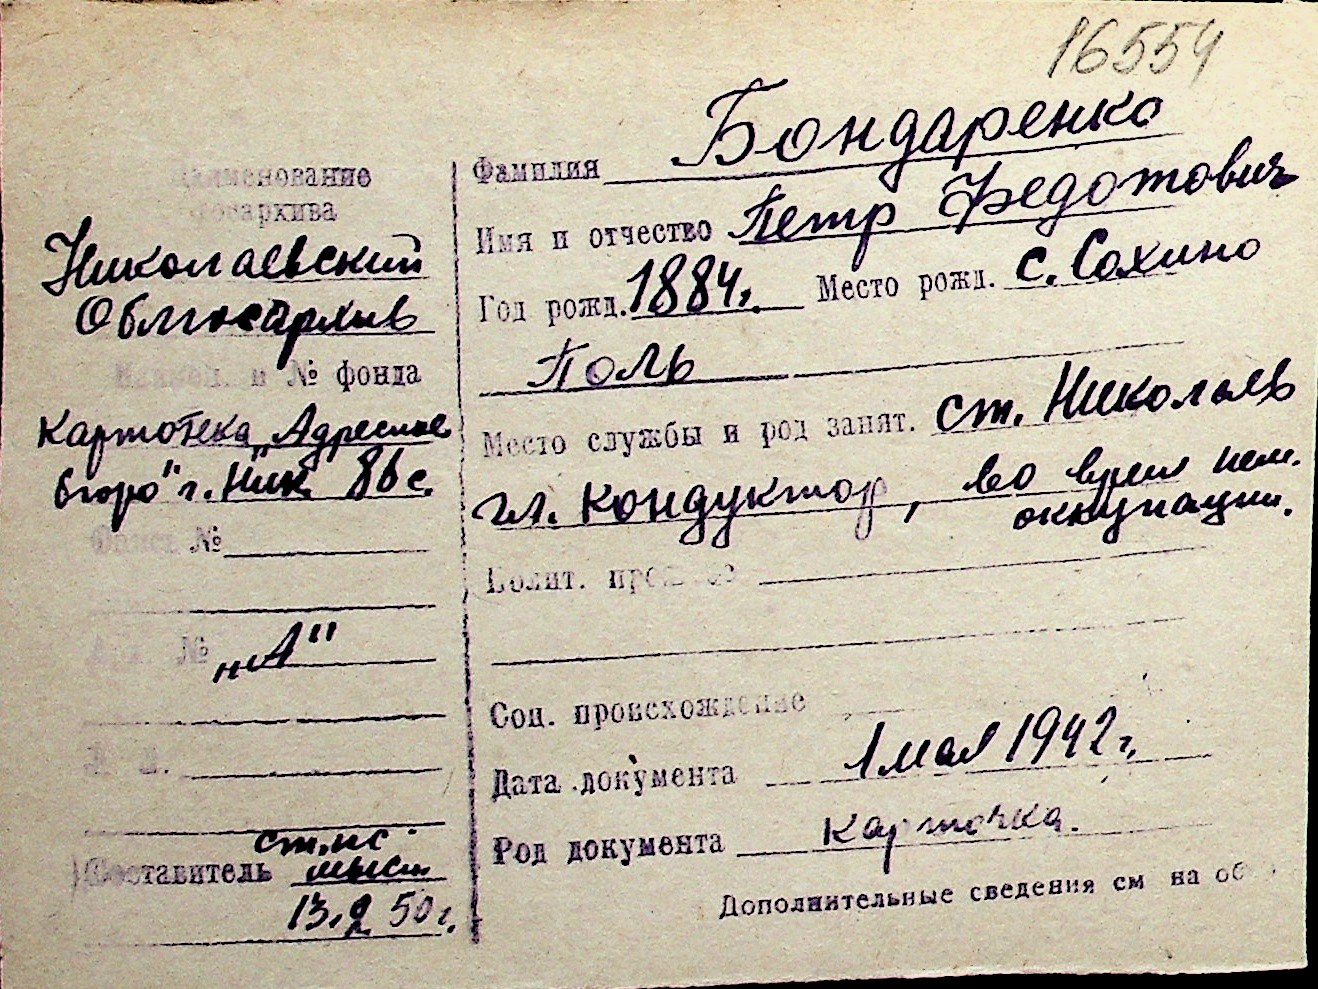 16554
Наименование
госархива
Николаевский
Облгосархив
Наимен. и № фонда
Картотека „Адресное
бюро" г. Ник
Опись №
„А"
Составитель
13. 50 г.
Фамилия Бондаренко
Имя и отчество Петр Федотович
Год рожд. 1884 г. Место рожд. с. Сохино
Поль
Место службы и род занят. ст. Николаев
гл. кондуктор, во время нем.
оккупации.
Полит.
Соц. происхождение
Дата документа 1 мая 1942 г.
Род документа карточка.
Дополнительные сведения см на об